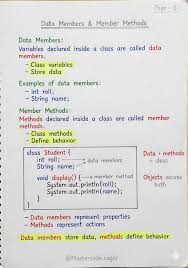 Page - 8
Data Members & Member Methods
Data Members:
Variables declared inside a class are called data
members.
- Class variables
- Store data
Examples of data members:
- int roll;
- String name;
Member Methods:
Methods declared inside a class are called member
methods.
- Class methods
- Define behavior
class Student {
int roll; data members
String name;
void display() { member method
System.out.println(roll);
System.out.println(name);
}
Data + methods
= class
Objects access
both
- Data members represent properties
- Methods represent actions
Data members store data, methods define behavior